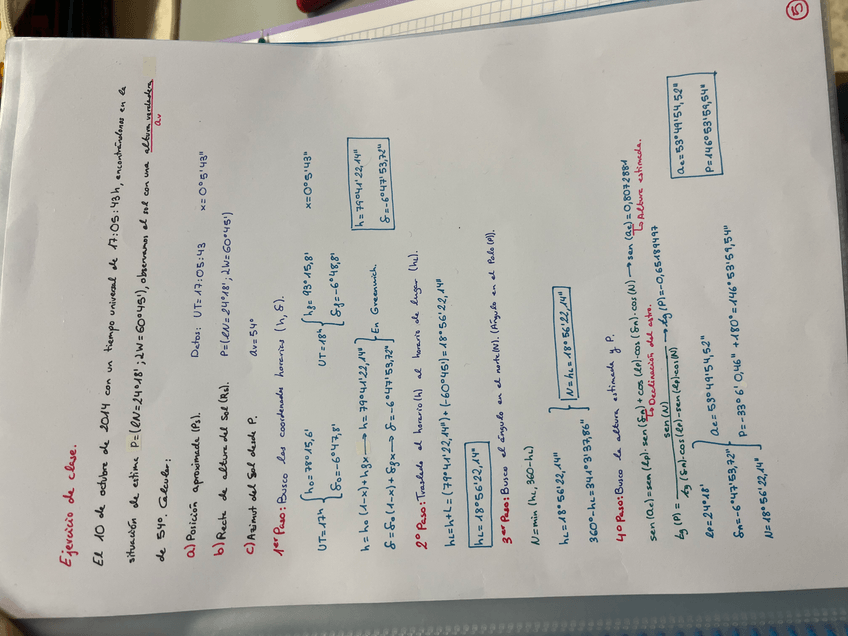 5
Ejercicio de clase.
El 10 de octubre de 2014 con un tiempo universal de 17:05:43h, encontrándonos en la
situación de estima P=(lN=24°18'; LW=60°45'), observamos el sol con una altura verdadera
av
de 54°. Calcular:
a) Posición aproximada (Ps).
b) Recta de altura del Sol (Ra).
c) Azimut del Sol desde P.
Datos: UT=17:05:43 x=0°5'43"
P=(lN=24°18'; LW=60°45')
av=54°
1er Paso: Busco las coordenadas horarias (h, δ).
UT=17h { h0=78°15,6' UT=18h { hf=93°15,8' x=0°5'43"
δ0=-6°47,8' δf=-6°48,8'
h=h0(1-x)+hfx → h=79°41'22,14" } En Greenwich. h=79°41'22,14"
δ=δ0(1-x)+δfx → δ=-6°47'53,72" δ=-6°47'53,72"
2º Paso: Traslado el horario(h) al horario de lugar (hL).
hL=h+L=(79°41'22,14")+(-60°45')=18°56'22,14"
hL=18°56'22,14"
3er Paso: Busco el ángulo en el norte(N). (Ángulo en el Polo(N)).
N=min(hL, 360-hL)
hL=18°56'22,14" } N=hL=18°56'22,14"
360°-hL=341°3'37,86"
4º Paso: Busco la altura estimada y P.
sen(ae)=sen(lp)·sen(δn)+cos(lp)·cos(δn)·cos(N) → sen(ae)=0,8072881
↳ Declinación del astro. ↳ Altura estimada.
tg(P)= sen(N) / tg(δn)·cos(lp)-sen(lp)·cos(N) → tg(P)=-0,65189497
lp=24°18'
δn=-6°47'53,72" } ae=53°49'54,52" ae=53°49'54,52"
N=18°56'22,14" P=-33°6'0,46" +180°=146°53'59,54" P=146°53'59,54"